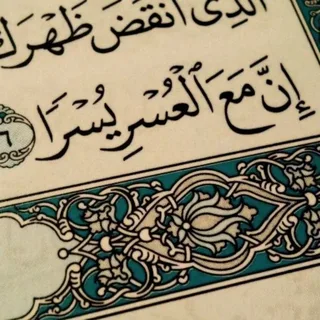 الَّذِي أَنقَضَ ظَهْرَكَ
إِنَّ مَعَ الْعُسْرِ يُسْرًا ٦